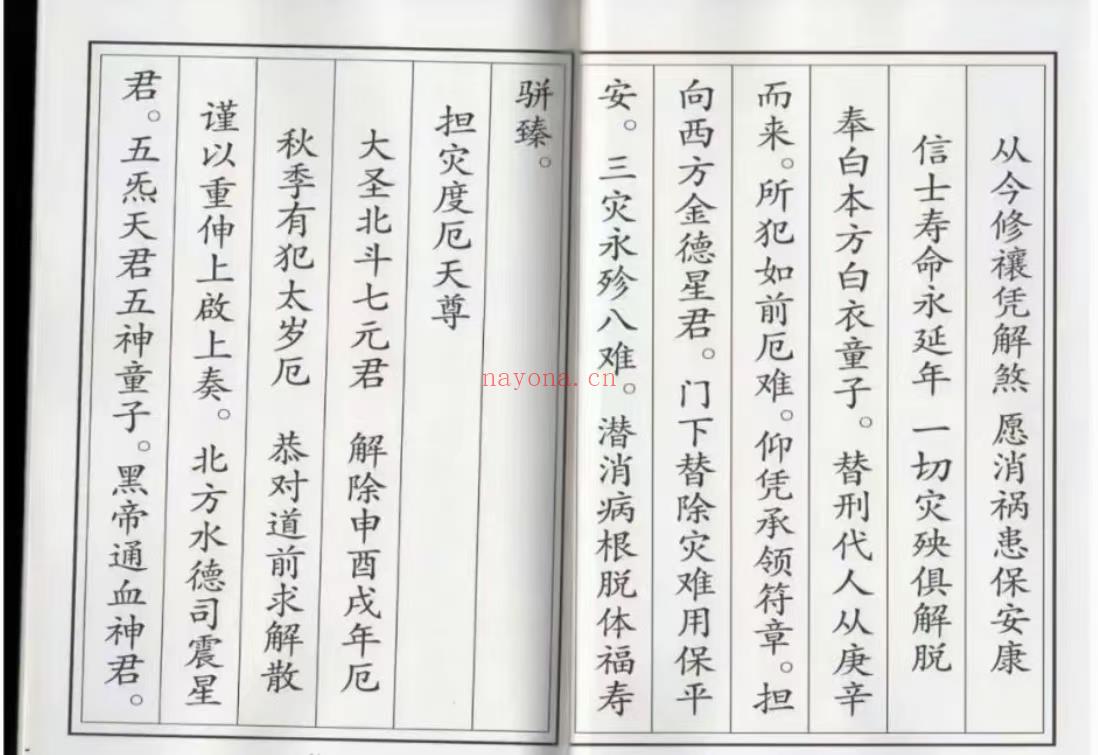 从今修禳凭解煞 愿消祸患保安康
信士寿命永延年 一切灾殃俱解脱
奉白本方白衣童子。替刑代人从庚辛
而来。所犯如前厄难。仰凭承领符章。担
向西方金德星君。门下替除灾难用保平
安。三灾永殄八难。潜消病根脱体福寿
骈臻。
担灾度厄天尊
大圣北斗七元君 解除申酉戌年厄
秋季有犯太岁厄 恭对道前求解散
谨以重伸上啟上奏。北方水德司震星
君。五炁天君五神童子。黑帝通血神君。
nayona.cn